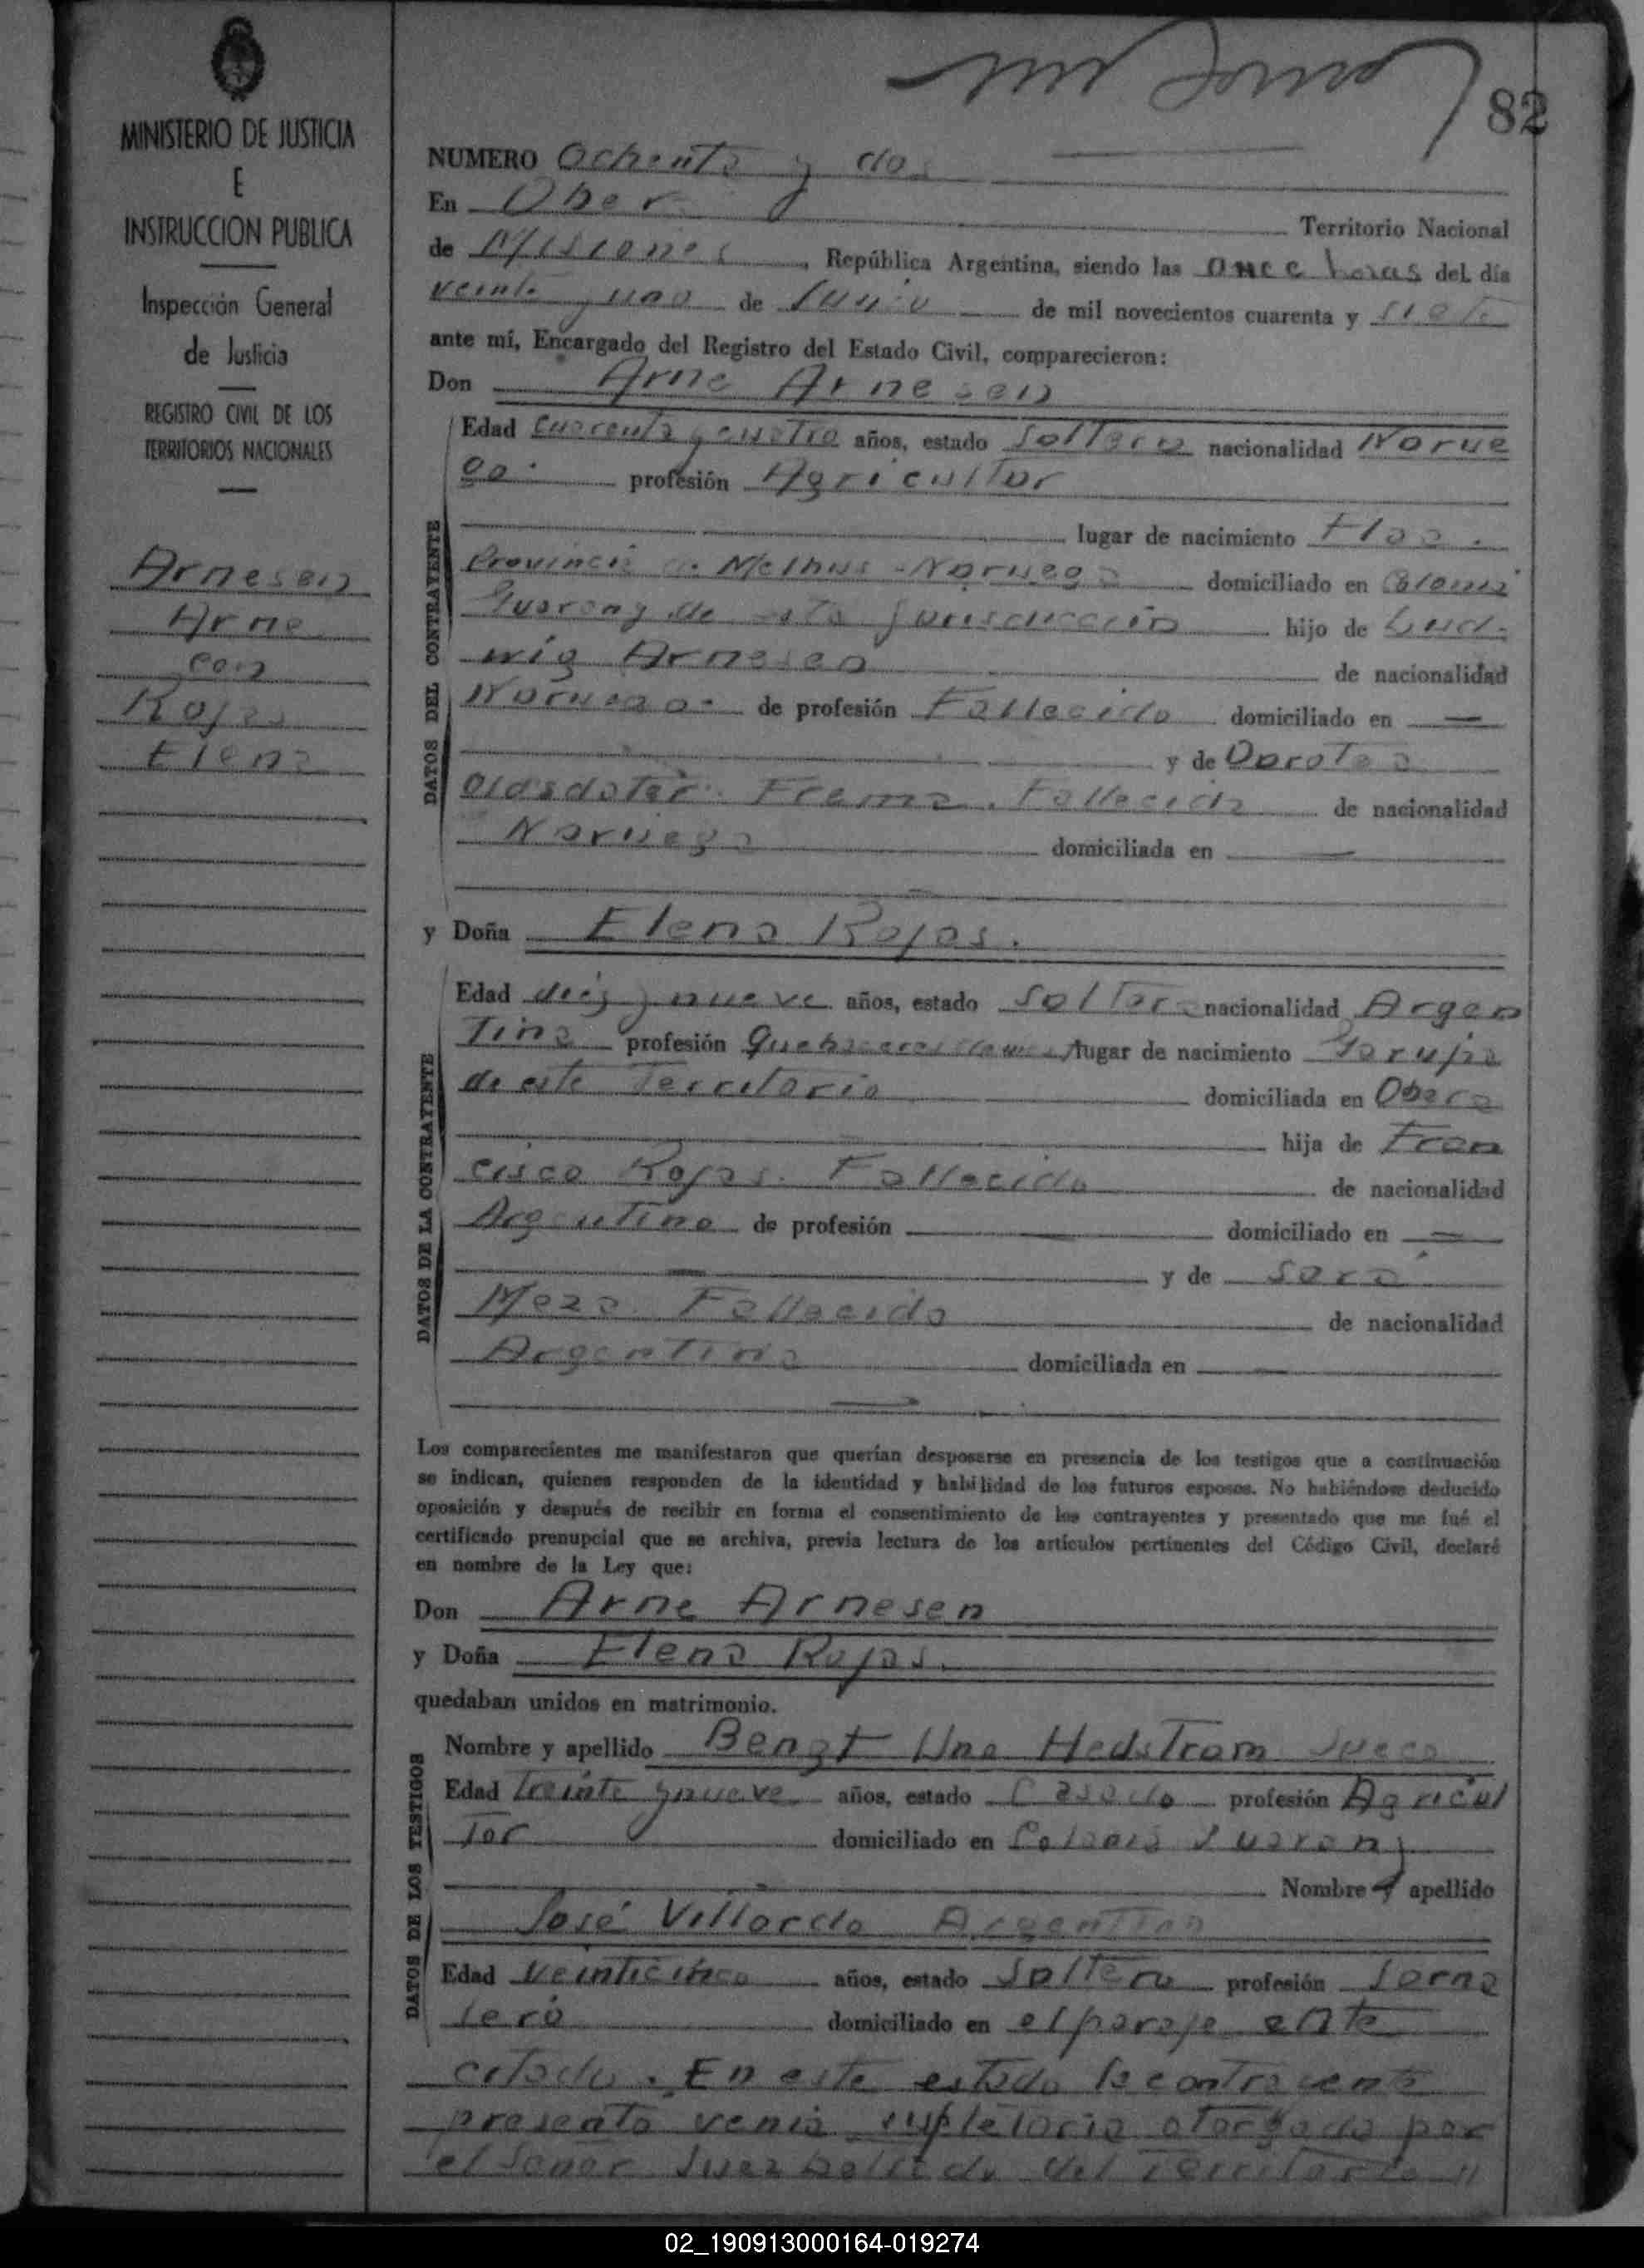 MINISTERIO DE JUSTICIA
E
INSTRUCCION PUBLICA
Inspección General
de Justicia
REGISTRO CIVIL DE LOS
TERRITORIOS NACIONALES
Arnesen
Arne
con
Rojas
Elena
82
NUMERO Ochenta y dos
En Obera Territorio Nacional
de Misiones, República Argentina, siendo las once horas del día
veinte y uno de Junio de mil novecientos cuarenta y siete
ante mí, Encargado del Registro del Estado Civil, comparecieron:
Don Arne Arnesen
DATOS DEL CONTRAYENTE
Edad cuarenta y cuatro años, estado Soltero nacionalidad Norue
go. profesión Agricultor
lugar de nacimiento Flaa.
Provincia de Melhus - Noruega domiciliado en Colonia
Guarany de esta jurisdiccion hijo de Lud-
wig Arnesen de nacionalidad
Noruego. de profesión Fallecido domiciliado en —
y de Dorotea
Olasdoter. Fremo. Fallecida de nacionalidad
Noruega domiciliada en —
y Doña Elena Rojas.
DATOS DE LA CONTRAYENTE
Edad diez y nueve años, estado Soltera nacionalidad Argen
tina profesión Quehaceres lugar de nacimiento Garupa
de este Territorio domiciliada en Obera
hija de Fran
cisco Rojas. Fallecido de nacionalidad
Argentino de profesión — domiciliado en —
y de Sara
Meza Fallecida de nacionalidad
Argentina domiciliada en —
Los comparecientes me manifestaron que querían desposarse en presencia de los testigos que a continuación
se indican, quienes responden de la identidad y habilidad de los futuros esposos. No habiéndose deducido
oposición y después de recibir en forma el consentimiento de los contrayentes y presentado que me fué el
certificado prenupcial que se archiva, previa lectura de los artículos pertinentes del Código Civil, declaré
en nombre de la Ley que:
Don Arne Arnesen
y Doña Elena Rojas.
quedaban unidos en matrimonio.
DATOS DE LOS TESTIGOS
Nombre y apellido Bengt Uno Hedstrom Sueco
Edad treinta y nueve años, estado Casado profesión Agricul
tor domiciliado en Colonia Guarany
Nombre y apellido
José Villarda Argentino
Edad veinticinco años, estado Soltero profesión Jorna
lero domiciliado en el paraje ante
citado. En este estado la contrayente
presenta venia supletoria otorgada por
el Señor Juez Letrado del Territorio "
02_190913000164-019274